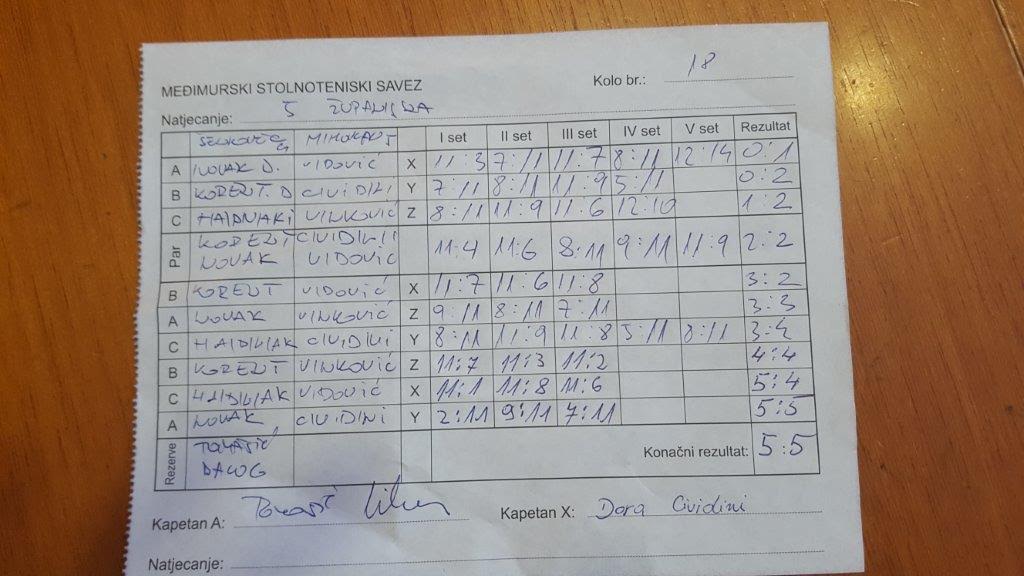 MEĐIMURSKI STOLNOTENISKI SAVEZ
Kolo br.: 18
Natjecanje: 5 ŽUPANIJSKA
I set II set III set IV set V set Rezultat
A NOVAK D. VIDOVIĆ X 11:3 7:11 11:7 8:11 12:14 0:1
B KORENT. D CIVIDINI Y 7:11 8:11 11:9 5:11 0:2
C HAJDINJAK VINKOVIĆ Z 8:11 11:9 11:6 12:10 1:2
Par KORENT CIVIDINI
NOVAK VIDOVIĆ 11:4 11:6 8:11 9:11 11:9 2:2
B KORENT VIDOVIĆ X 11:7 11:6 11:8 3:2
A NOVAK VINKOVIĆ Z 9:11 8:11 7:11 3:3
C HAJDINJAK CIVIDINI Y 8:11 11:9 11:8 5:11 8:11 3:4
B KORENT VINKOVIĆ Z 11:7 11:3 11:2 4:4
C HAJDINJAK VIDOVIĆ X 11:1 11:8 11:6 5:4
A NOVAK CIVIDINI Y 2:11 9:11 7:11 5:5
Rezerve TOMAŠIĆ
Konačni rezultat: 5:5
Kapetan A: Tomašić
Kapetan X: Dora Cividini
Natjecanje: